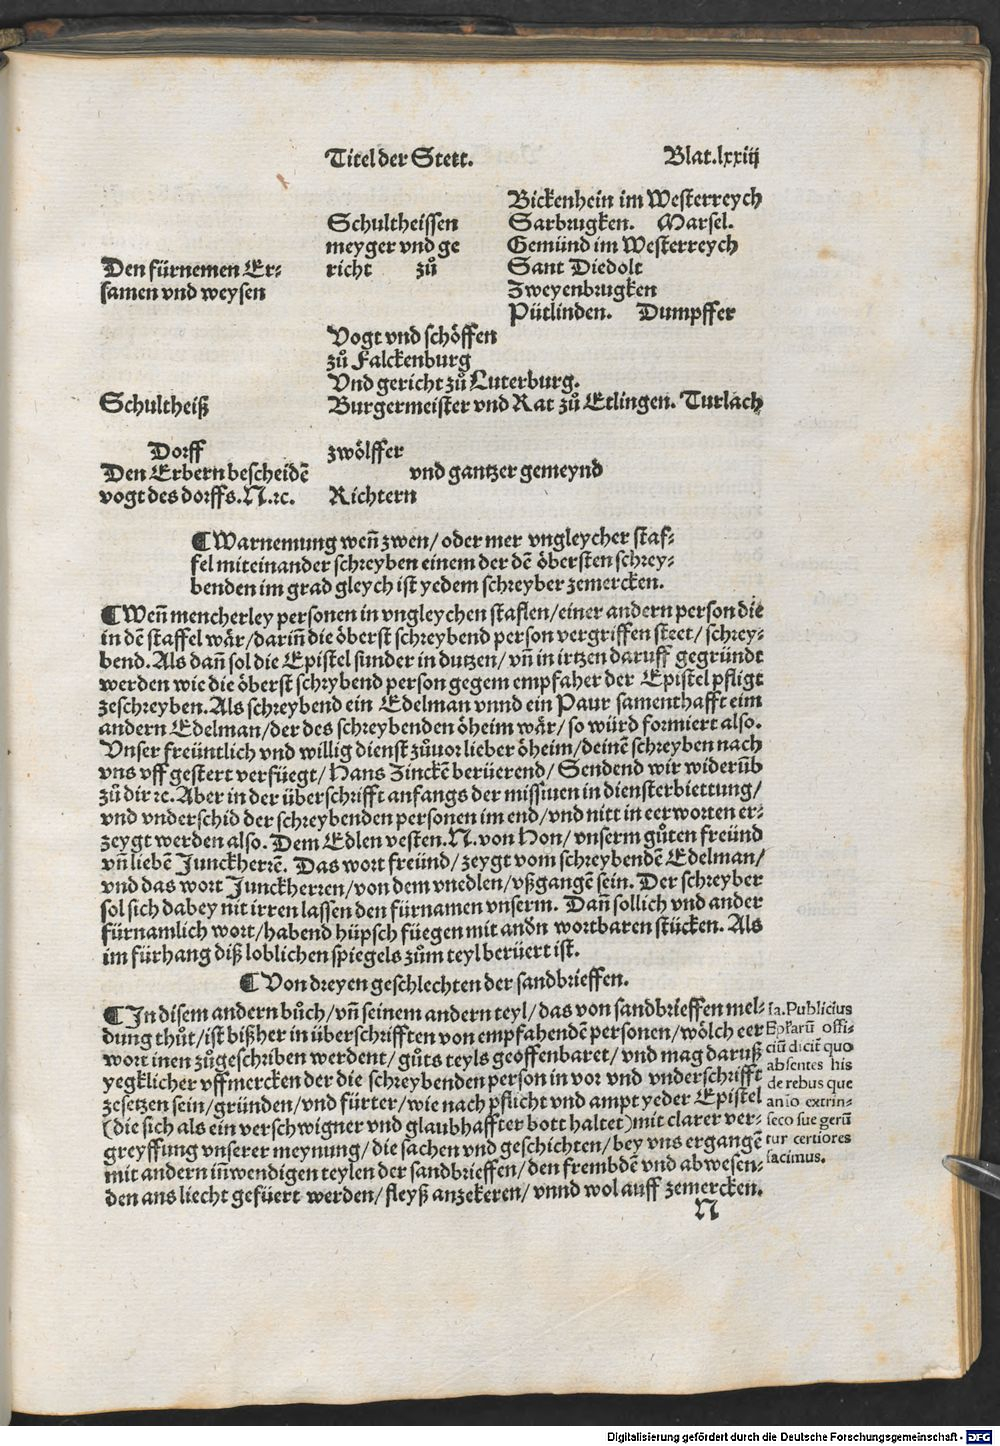 Titel der Stett. Blat.lxxiij
Bickenhein im Westerreych
Schultheissen Sarbrugken. Marsel.
meyger vnd ge Gemünd im Westerreych
Den fürnemen Er⸗ richt zů Sant Diedolt
samen vnd weysen Zweyenbrugken
Pütlinden. Dumpffer
Vogt vnd schöffen
zů Falckenburg
Vnd gericht zů Luterburg.
Schultheiß Burgermeister vnd Rat zů Etlingen. Turlach
Dorff zwölffer
Den Erbern bescheidē vnd gantzer gemeynd
vogt des dorffs. N. ꝛc. Richtern
¶ Warnemung weñ zwen/ oder mer vngleycher staf⸗
fel miteinander schreyben einem der dē öbersten schrey⸗
benden im grad gleych ist yedem schreyber zemercken.
¶ Weñ mencherley personen in vngleychen staflen/ einer andern person die
in dē staffel wär/ dariñ die öberst schreybend person vergriffen steet/ schrey⸗
bend. Als dañ sol die Epistel sunder in dutzen/ vñ in irtzen daruff gegründt
werden wie die öberst schrybend person gegem empfaher der Epistel pfligt
zeschreyben. Als schreybend ein Edelman vnnd ein Paur samenthafft eim
andern Edelman/ der des schreybenden öheim wär/ so würd formiert also.
Vnser freüntlich vnd willig dienst zůuor lieber öheim/ deinē schreyben nach
vns vff gestert verfüegt/ Hans Zinckē berüerend/ Sendend wir widerūb
zů dir ꝛc. Aber in der überschrifft anfangs der missiuen in diensterbiettung/
vnd vnderschid der schreybenden personen im end/ vnd nitt in eerworten er⸗
zeygt werden also. Dem Edlen vesten. N. von Hon/ vnserm gůten freünd
vñ liebē Junckherrē. Das wort freünd/ zeygt vom schreybendē Edelman/
vnd das wort Junckherren/ von dem vnedlen/ vßgangē sein. Der schreyber
sol sich dabey nit irren lassen den fürnamen vnserm. Dañ sollich vnd ander
fürnamlich wort/ habend hüpsch füegen mit andn wortbaren stücken. Als
im fürhang diß loblichen spiegels zům teyl berüert ist.
¶ Von dreyen geschlechten der sandbrieffen.
¶ In disem andern bůch/ vñ seinem andern teyl/ das von sandbrieffen mel⸗
dung thůt/ ist bißher in überschrifften von empfahendē personen/ wölch eer
wort inen zůgeschriben werdent/ gůts teyls geoffenbaret/ vnd mag daruß
yegklicher vffmercken der die schreybenden person in vor vnd vnderschrifft
zesetzen sein/ gründen/ vnd fürter/ wie nach pflicht vnd ampt yeder Epistel
(die sich als ein verschwigner vnd glaubhaffter bott haltet) mit clarer ver⸗
greyffung vnserer meynung/ die sachen vnd geschichten/ bey vns ergangē
mit andern iñwendigen teylen der sandbrieffen/ den frembdē vnd abwesen⸗
den ans liecht gefüert werden/ fleyß anzekeren/ vnnd wol auff zemercken.
Publicius
Epłarū offi⸗
ciū dicit̄ quo
absentes his
de rebus que
aīo extrin⸗
seco siue gerū
tur certiores
facimus.
N
Digitalisierung gefördert durch die Deutsche Forschungsgemeinschaft - DFG